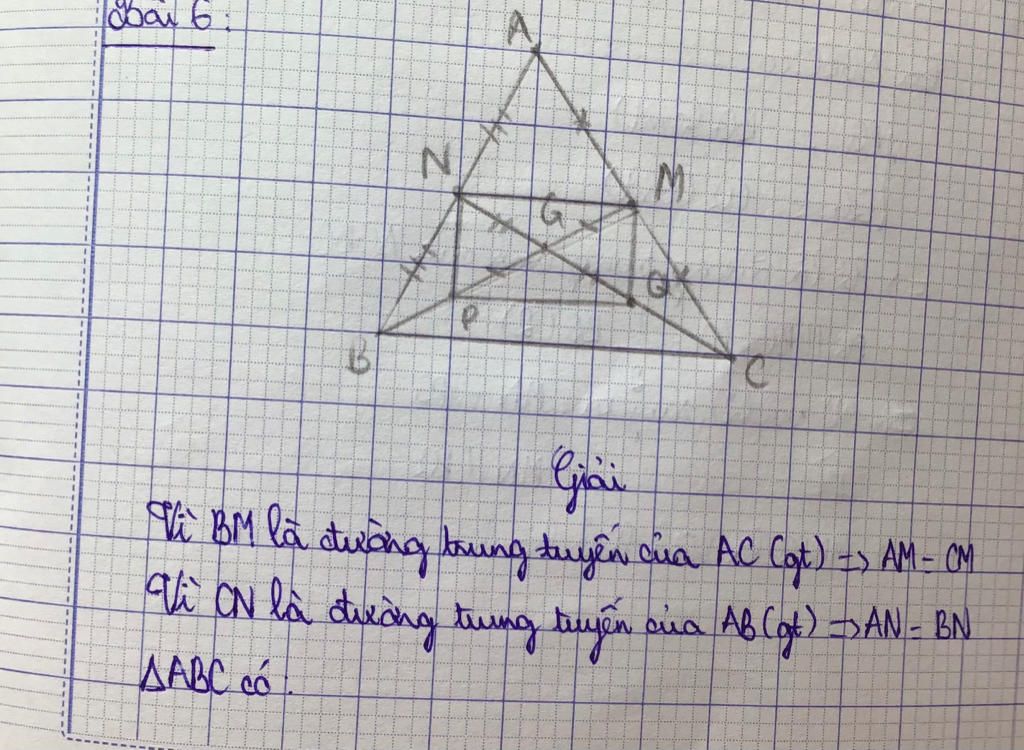 Bài 6:
A
N
M
G
Q
P
B
C
Giải
Vì BM là đường trung tuyến của AC (gt) => AM = CM
Vì CN là đường trung tuyến của AB (gt) => AN = BN
ΔABC có: